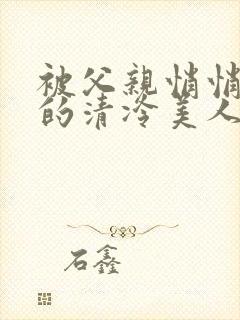 被父亲悄悄
的清冷美人
石鑫